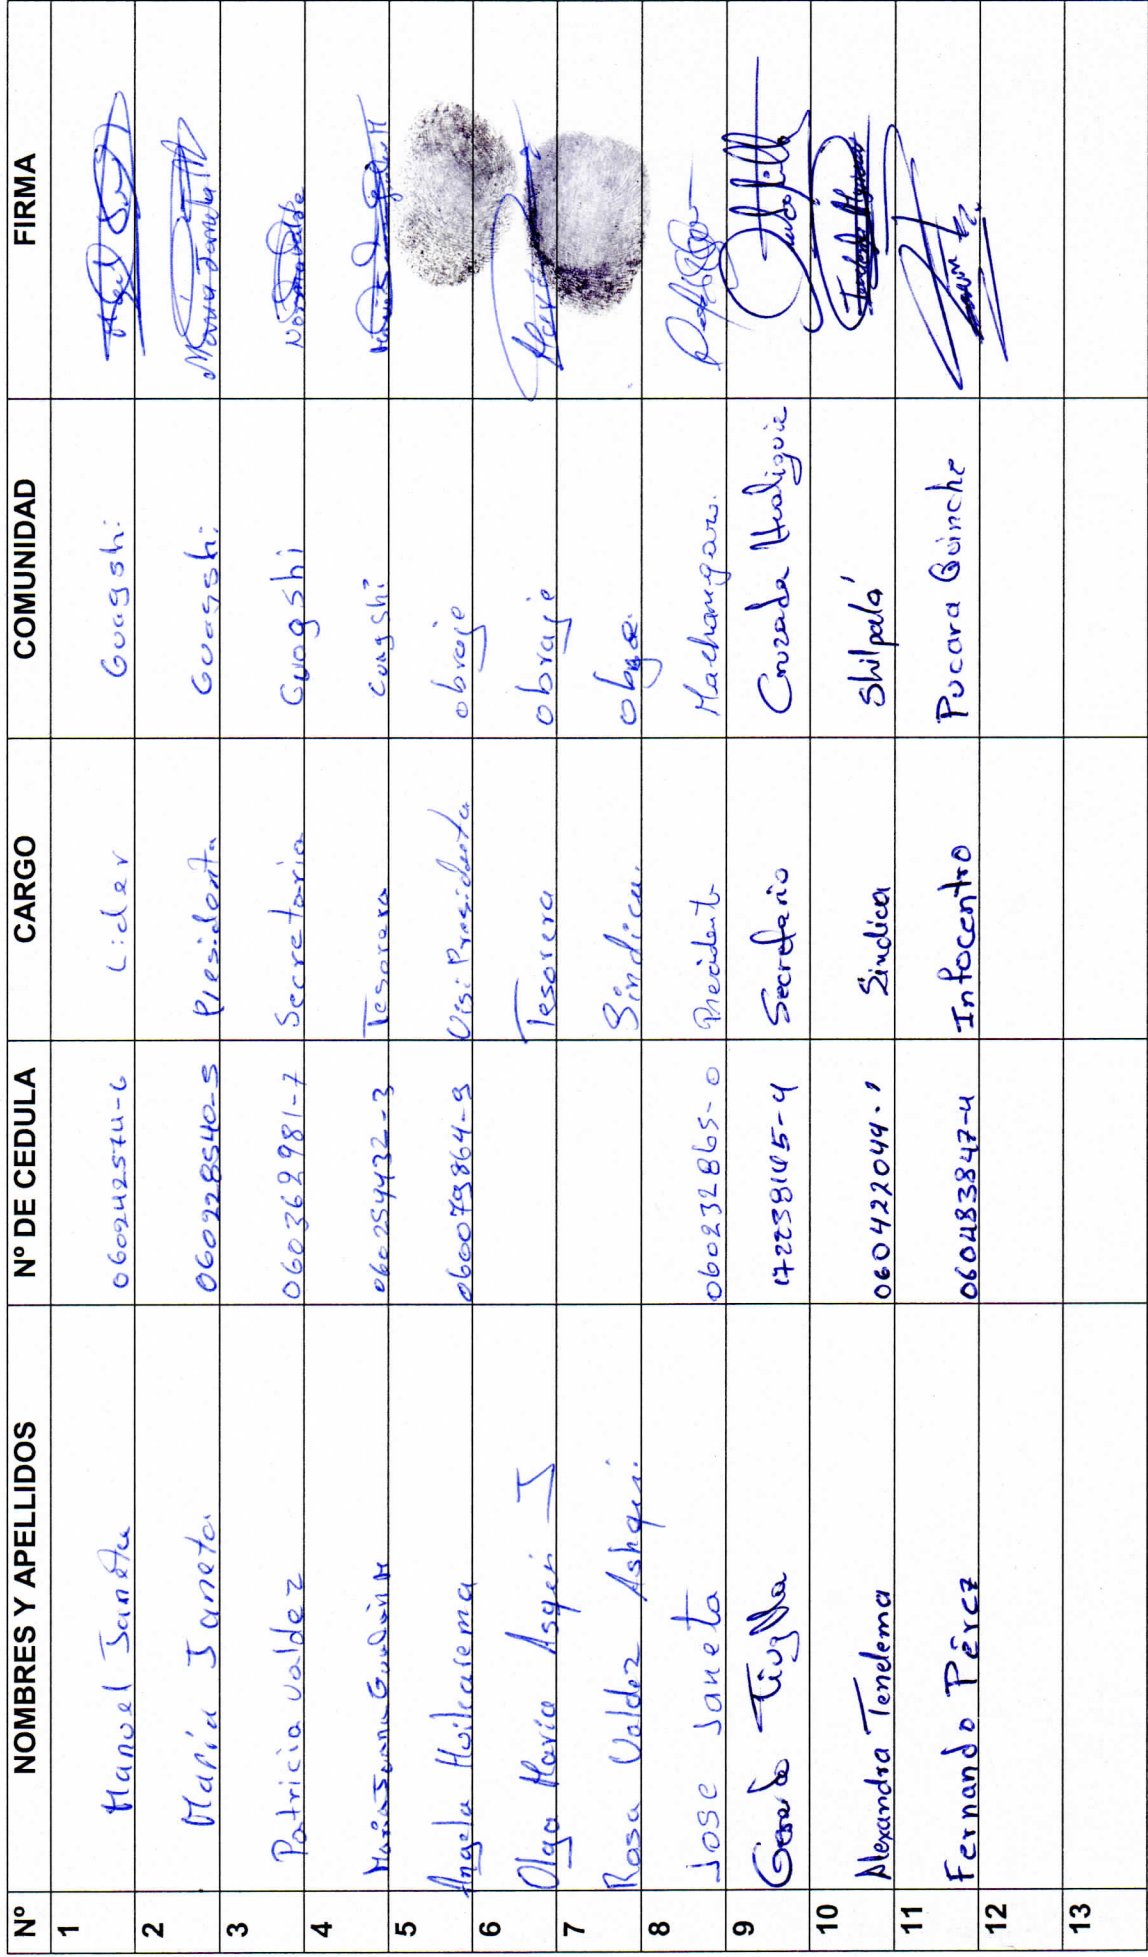 Nº NOMBRES Y APELLIDOS Nº DE CEDULA CARGO COMUNIDAD FIRMA
1 Manuel Janeta 060242574-6 Lider Guagshi
2 María Janeta 060228540-5 Presidenta Guagshi María Janeta
3 Patricia Valdez 060362981-7 Secretaria Guagshi Norma Valdez
4 María Juana 060254432-3 Tesorera Guagshi
5 Angela Huilcarema 060079864-9 Visi Presidenta obraje
6 Olga María Asqui J Tesorera obraje María
7 Rosa Valdez Ashqui. Sindica.
8 Jose Janeta 060232865-0 Precidente Machangara.
9 172238145-4 Secretario Cruzada
10 Alexandra Tenelema 060422049-1 Sindica Shilpalá
11 Fernando Pérez 060483847-4 Infocentro Pucara Quinche
12
13